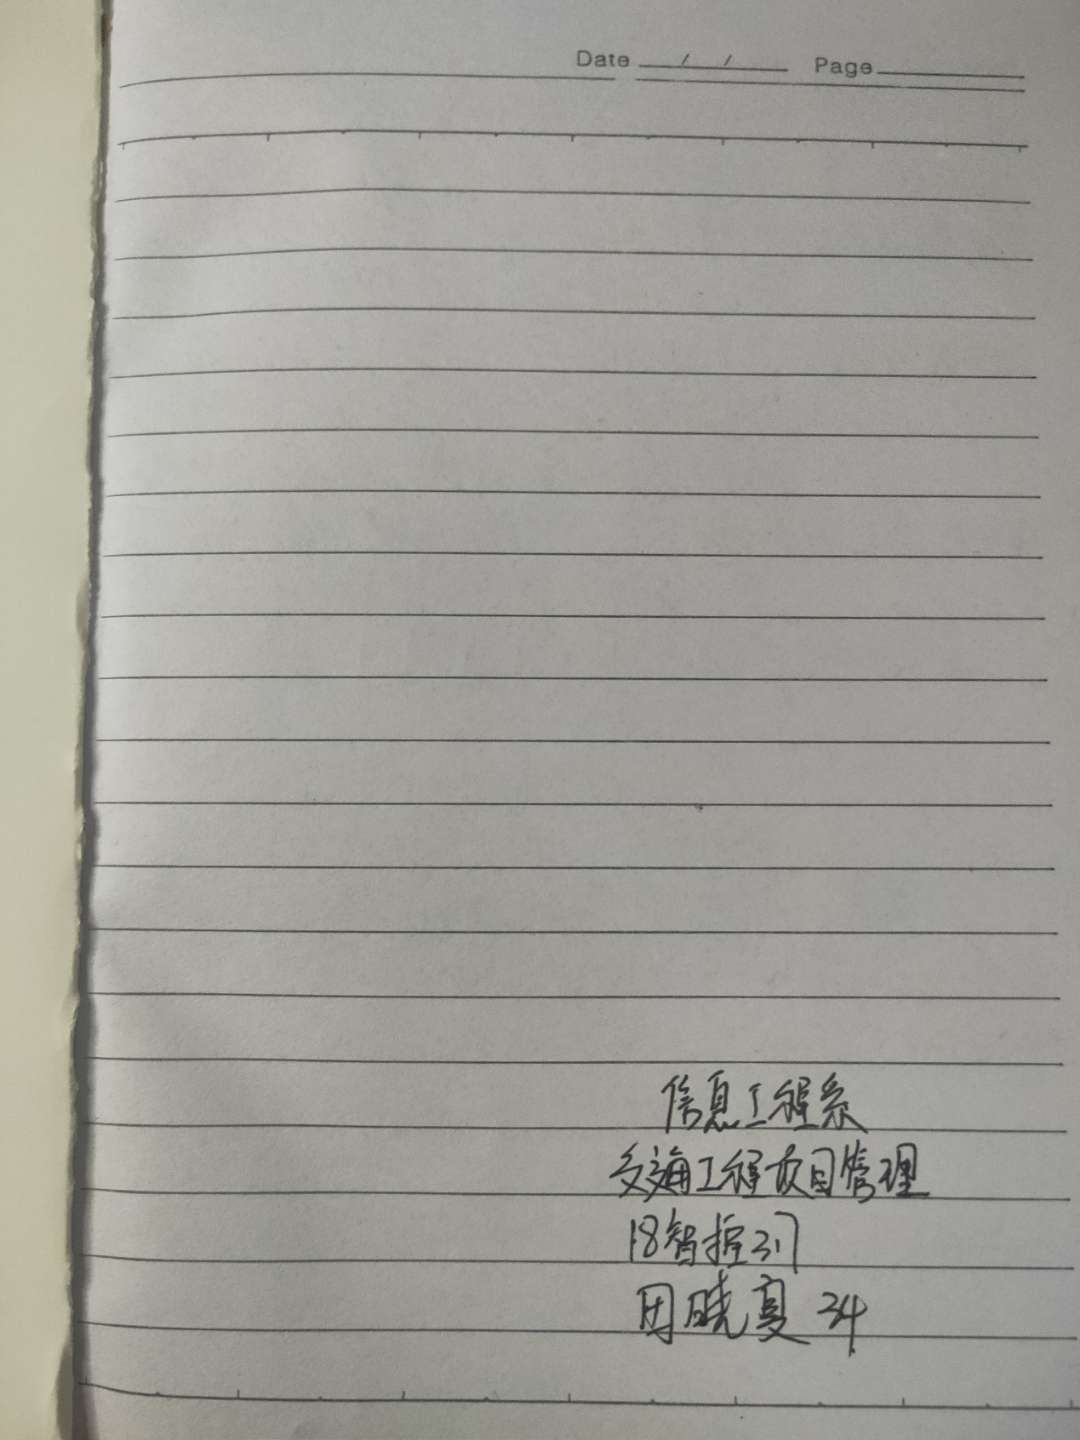 Date / / Page
信息工程系
交通工程项目管理
18智控317
田晓夏 34